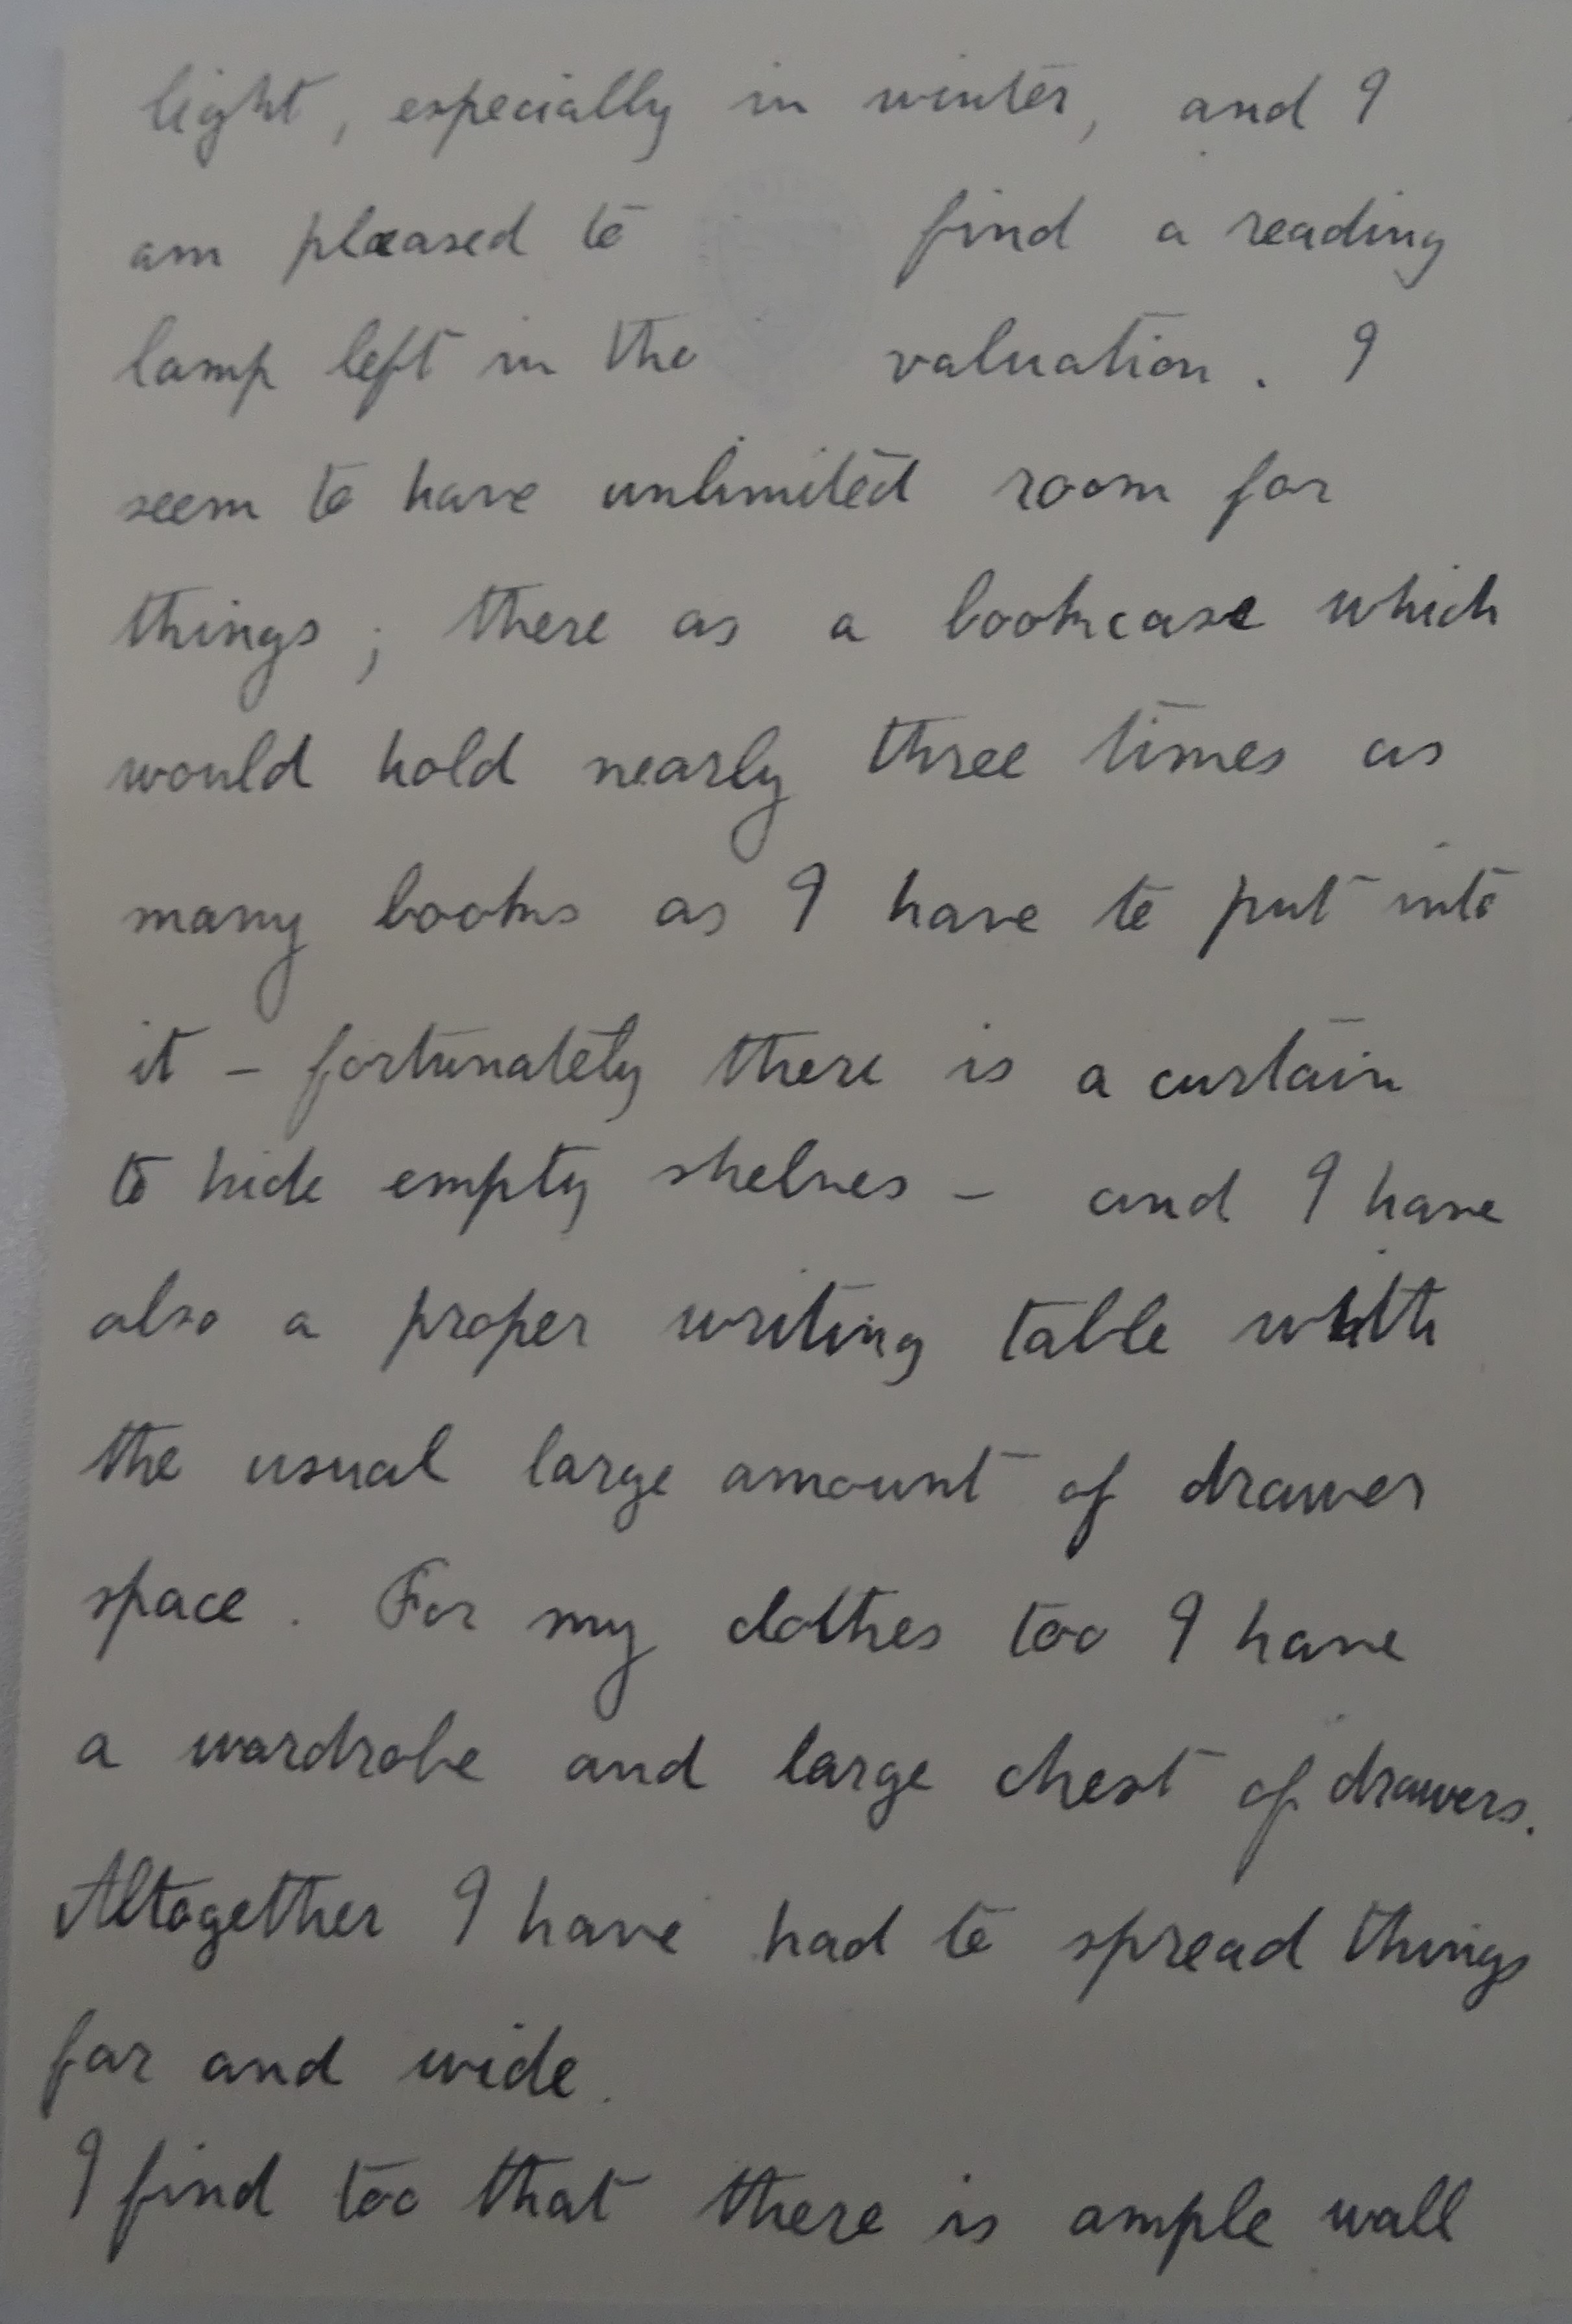 light, especially in winter, and I
am pleased to find a reading
lamp left in the valuation. I
seem to have unlimited room for
things; there as a bookcase which
would hold nearly three times as
many books as I have to put into
it – fortunately there is a curtain
to hide empty shelves – and I have
also a proper writing table with
the usual large amount of drawer
space. For my clothes too I have
a wardrobe and large chest of drawers.
Altogether I have had to spread things
far and wide.
I find too that there is ample wall